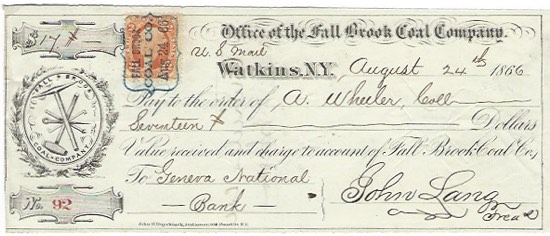 Office of the Fall Brook Coal Company.
$ 17 x
FALL BROOK
COAL CO.
AUG 24 66
U S Mail
Watkins, N.Y. August 24th 1866
Pay to the order of A. Wheeler, Coll
Seventeen x Dollars
Value received and charge to account of Fall Brook Coal Co,
FALL BROOK
COAL COMPANY
To Geneva National
Bank
John Lang
Treas
No. 92